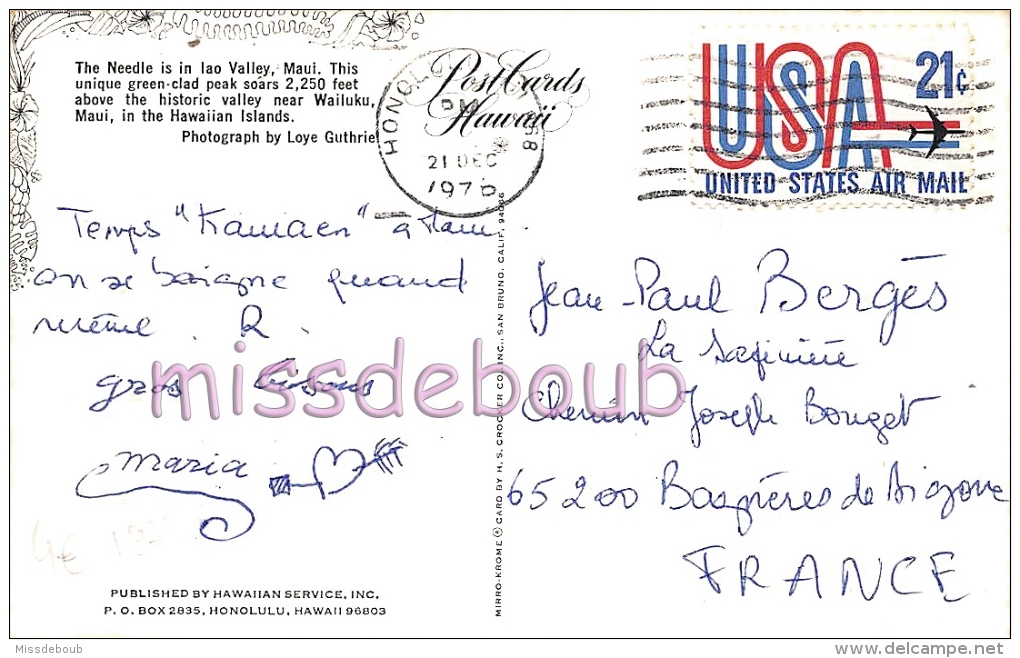 The Needle is in Iao Valley, Maui. This
unique green-clad peak soars 2,250 feet
above the historic valley near Wailuku,
Maui, in the Hawaiian Islands.
Photograph by Loye Guthrie
Post Cards
Hawaii
HONOL
PM
21 DEC
197
968
USA
21¢
UNITED STATES AIR MAIL
Temps " " à
on se baigne quand
même. R.
gros bisous
maria
missdeboub
Jean-Paul Bergès
La Sapinière
Chemin Joseph Bouget
65200 Bagnères de Bigorre
FRANCE
4€
MIRRO-KROME ® CARD BY H. S. CROCKER CO., INC., SAN BRUNO, CALIF. 94066
PUBLISHED BY HAWAIIAN SERVICE, INC.
P. O. BOX 2835, HONOLULU, HAWAII 96803
Missdeboub
www.delcampe.net